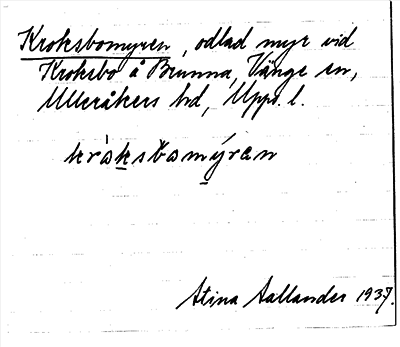 Kroksbomyren, odlad myr vid
Kroksbo å Brunna, Vänge sn,
Ulleråkers hd, Uppl. l.
kròksbomýren
Stina Sallander 1937.